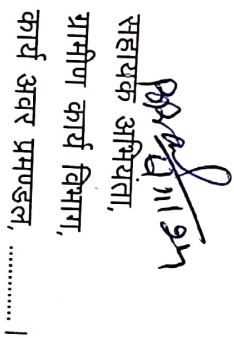 सहायक अभियंता,
ग्रामीण कार्य विभाग,
कार्य अवर प्रमण्डल, ............।